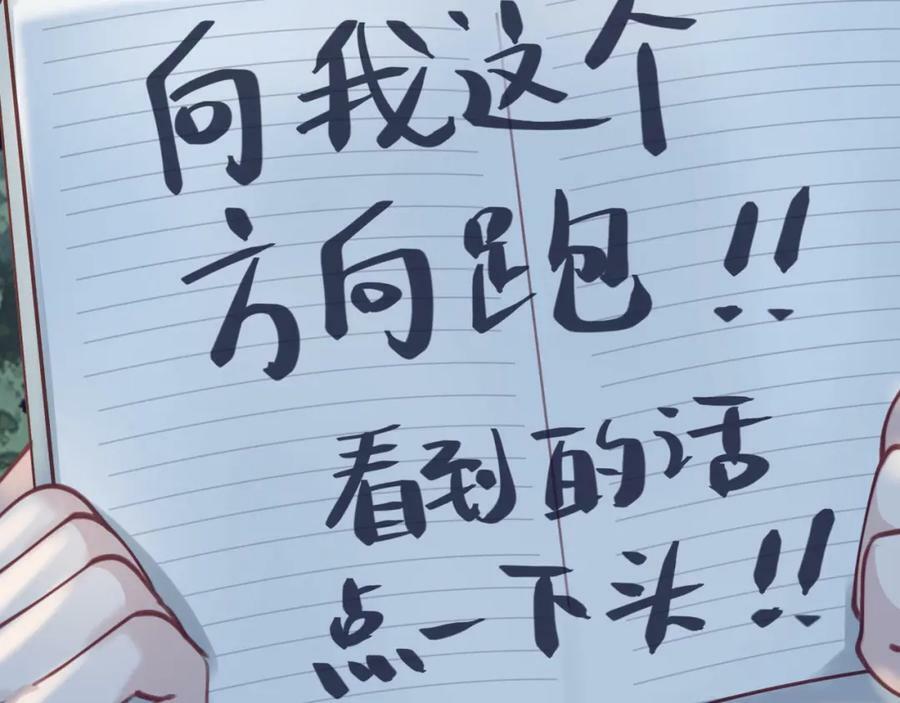 向我这个
方向跑!!
看到的话
点一下头!!